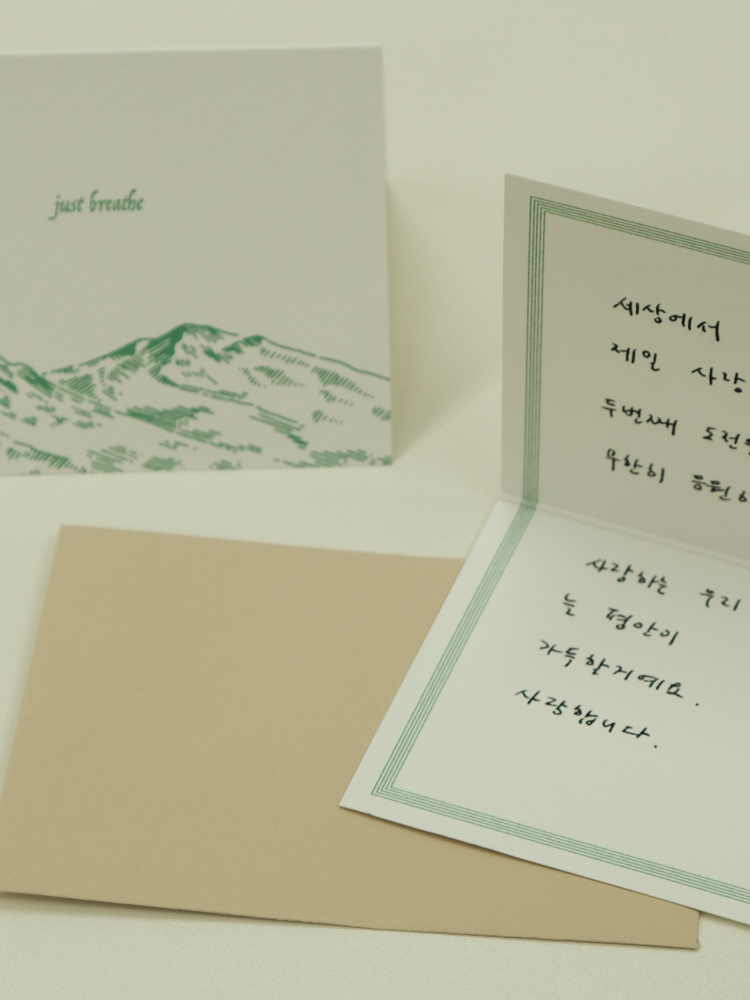 just breathe
세상에서
제일 사랑
두번째 도전을
무한히 응원하
사랑하는 우리
늘 평안이
가득할거예요.
사랑합니다.